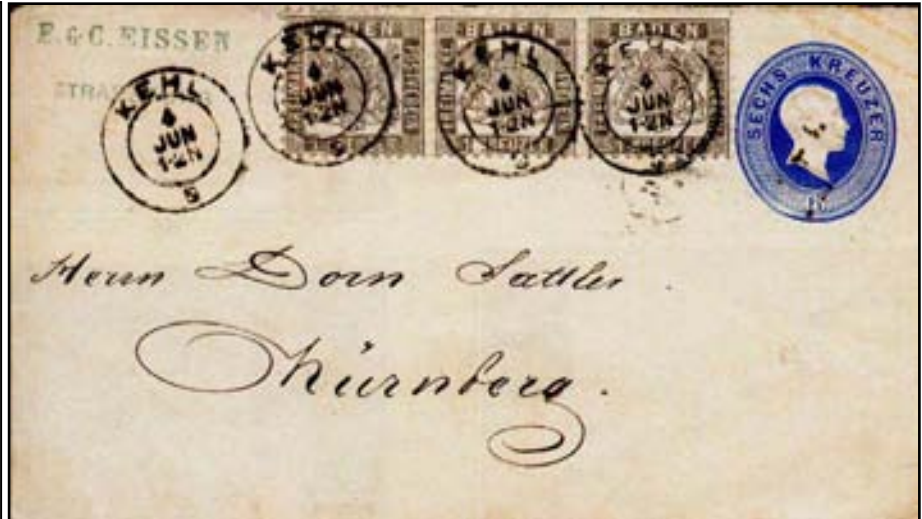 E. & C. EISSEN
KEHL
4
JUN
1-2N
KEHL
4
JUN
1-2N
BADEN
KEHL
4
JUN
1-2N
BADEN
KEHL
4
JUN
1-2N
BADEN
SECHS KREUZER
Herrn Dorn Sattler.
Nürnberg.